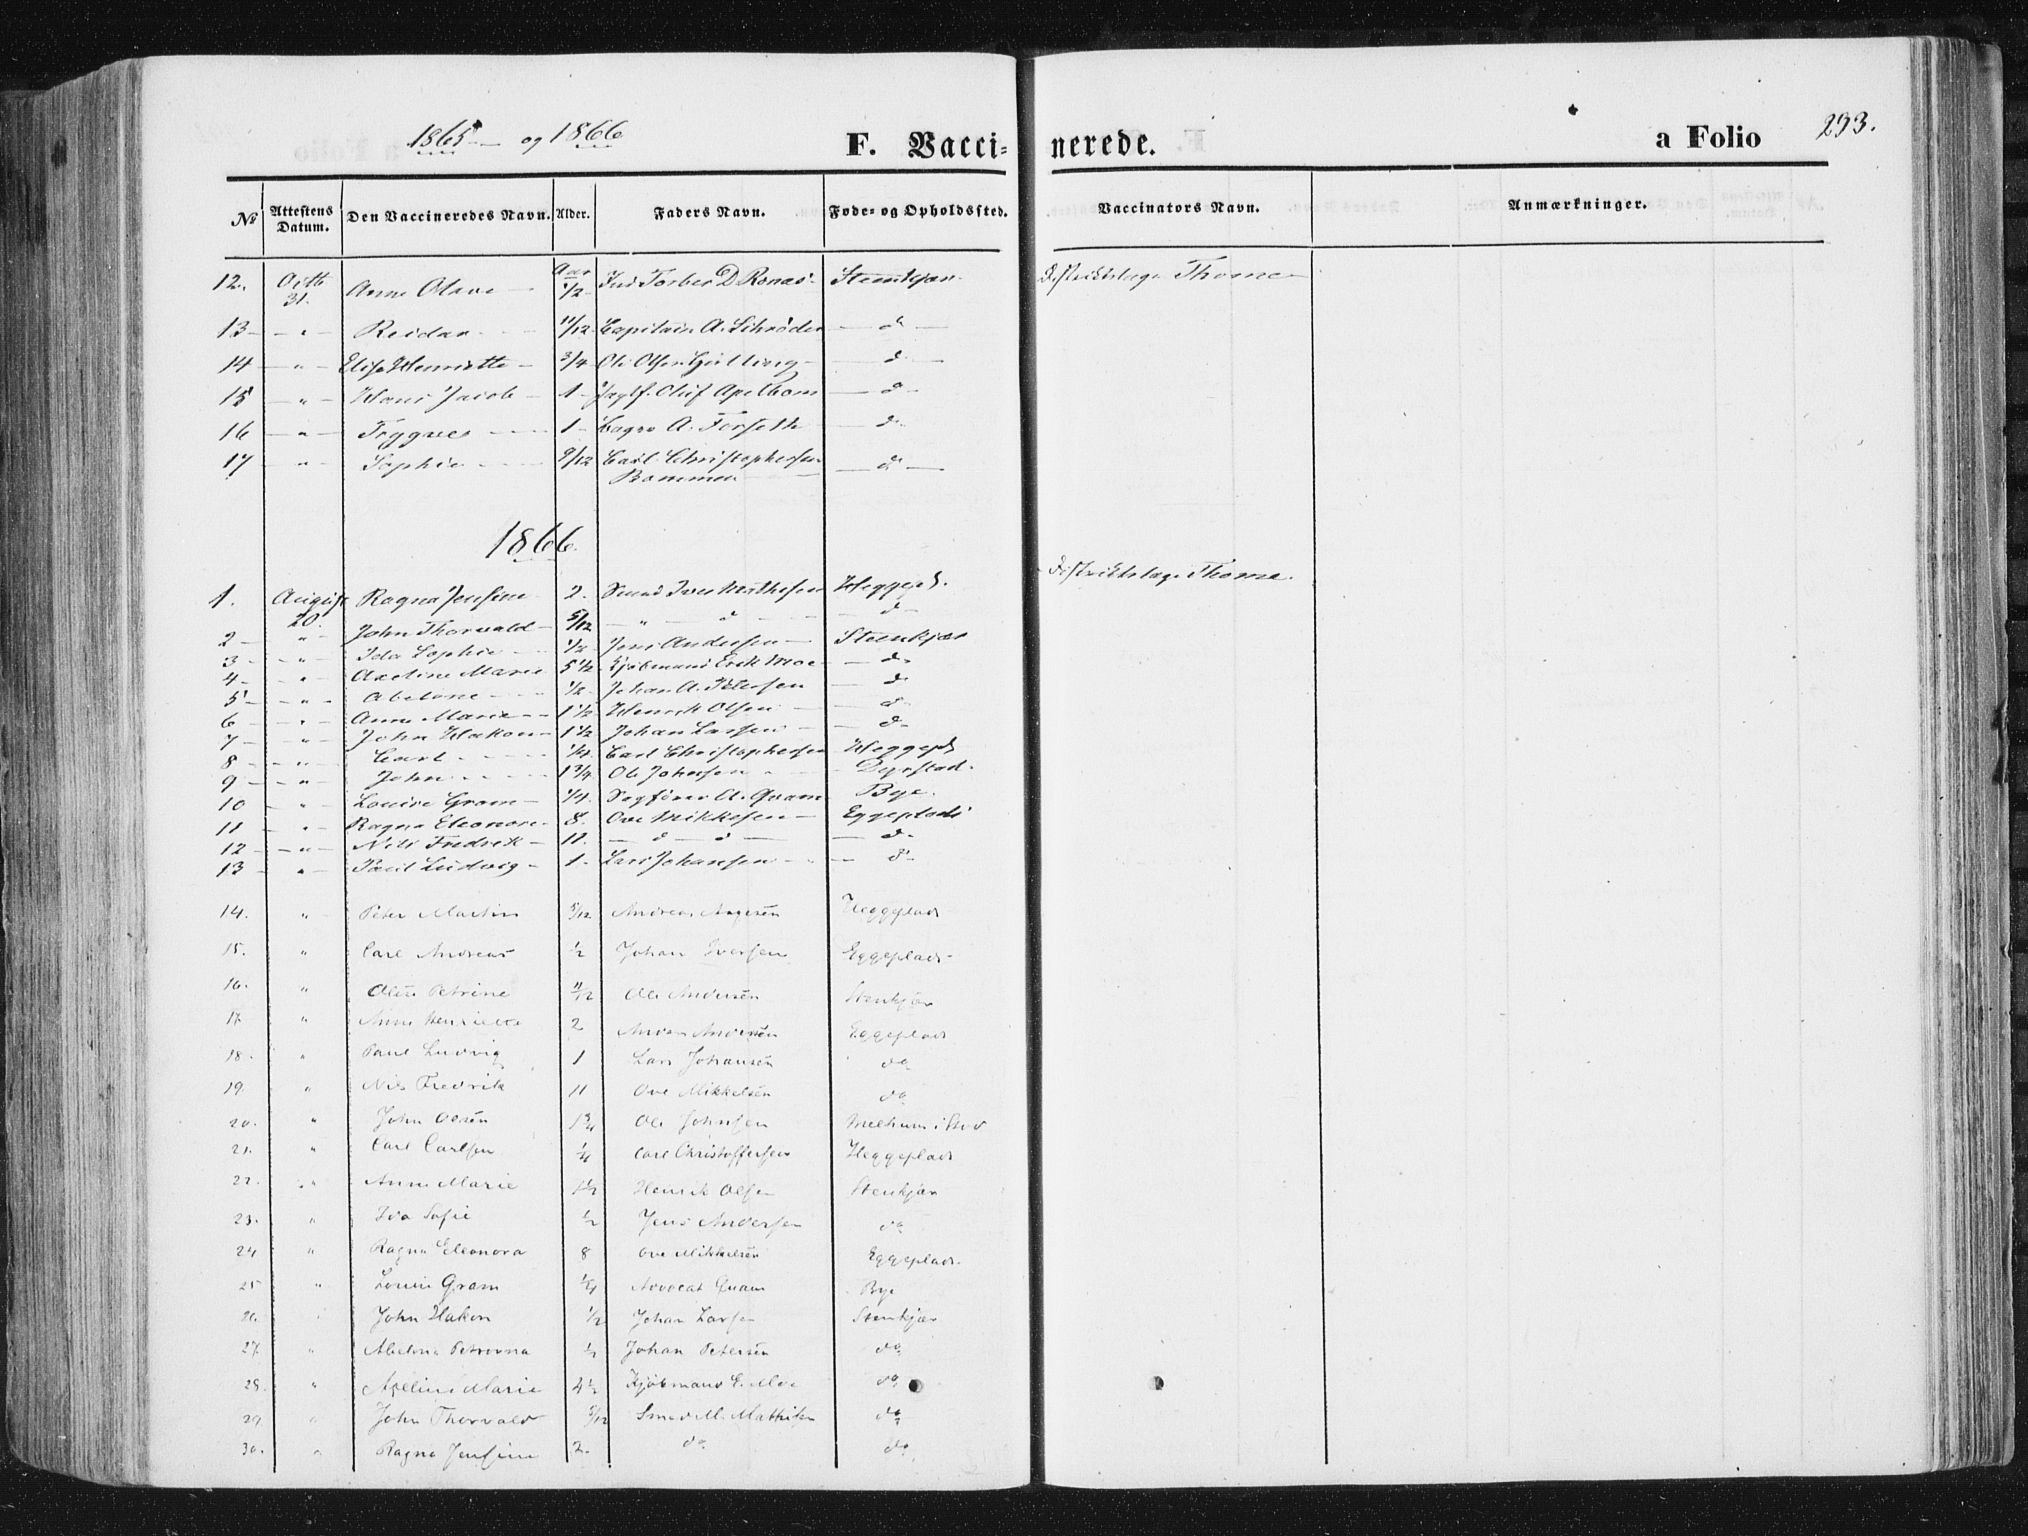 1865 og 1866 F. Vacci- nerede. a Folio 293.
№ Attestens Datum. Den Vaccineredes Navn. Alder. Faders Navn. Føde- og Opholdssted. Vaccinators Navn. Anmærkninger.
12. 31. Anne Olava Aar 1/2 D Stenkjær Thome
13 " Reidar 11/12 Capitain A. Schrøder d
14 " Elise Henriette 3/4 Ole Olsen d
15 " Hans Jacob 1 Oluf Apelbom d
16 " Trygve 1 A. Forseth d
17 " Sophie 9/12 Carl Christophersen d
1866.
1. August 20. Ragna Jensine 2. Smed Iver Mathesen Heggepl. Thome.
2 " John Thorvald 5/12 " d d
3 " Ida Sophie 1/2 Jens Andersen Steenkjær
4 " Axeline Marie 5 1/2 Kjøbmand Erik Moe d
5 " Abelone 1/2 Johan A. Petersen d
6 " Anne Marie 1 1/2 Henrik Olsen d
7 " John Hakon 1 1/2 Johan Larsen d
8 " Carl 1/4 Carl Christophersen Heggepl
9 " John 1 3/4 Ole Johnsen Dyrstad.
10 " Louise Gram 1/4. Sagfører A. Qvam Bye.
11 " Ragna Eleonore 8. Ove Mikkelsen Eggeplads
12 " Nils Fredrik 11. d d d
13 " Paul Ludvig 1. Lars Johansen d
14. " Peter Martin 5/12 Andreas Aagesen Heggeplads
15. " Carl Andreas 1/2 Johan Iversen Eggeplads
16. " Oline Petrine 11/12 Ole Andersen Stenkjær
17 " Anne Henriette 2 Anders Andersen Eggeplads
18. " Paul Ludvig 1 Lars Johansen do
19. " Nils Fredrik 11 Ove Mikkelsen do
20. " John Olsen 1 3/4 Ole Johnsen Melhum i Stod
21. " Carl Carlsen 1/4 Carl Christoffersen Heggeplads
22. " Anne Marie 1 1/2 Henrik Olsen Stenkjær
23. " Ida Sofie 1/2 Jens Andersen do
24 " Ragna Eleonora 8 Ove Mikkelsen Eggeplads
25 " Louise Gram 1/4 Advocat Quam Bye
26. " John Hakon 1/2 Johan Larsen Stenkjær
27. " Abelona Petrovna 1/2 Johan Petersen do
28. " Axeline Marie 4 1/2 Kjøbmand E. Moe do
29. " John Thorvald 5/12 Smed M. Mathisen do
30. " Ragna Jensine 2. do do